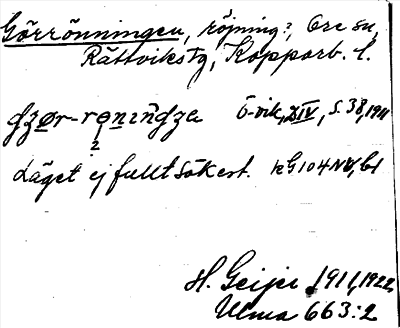 Görrönningen, röjning?, Ore sn,
Rättvikstg, Kopparb. l.
Ö-vik, XIV, S. 38, 1911
2
Läget ej fullt säkert. kG104NV, b1
H. Geijer 1911, 1922
Ulma 663:2